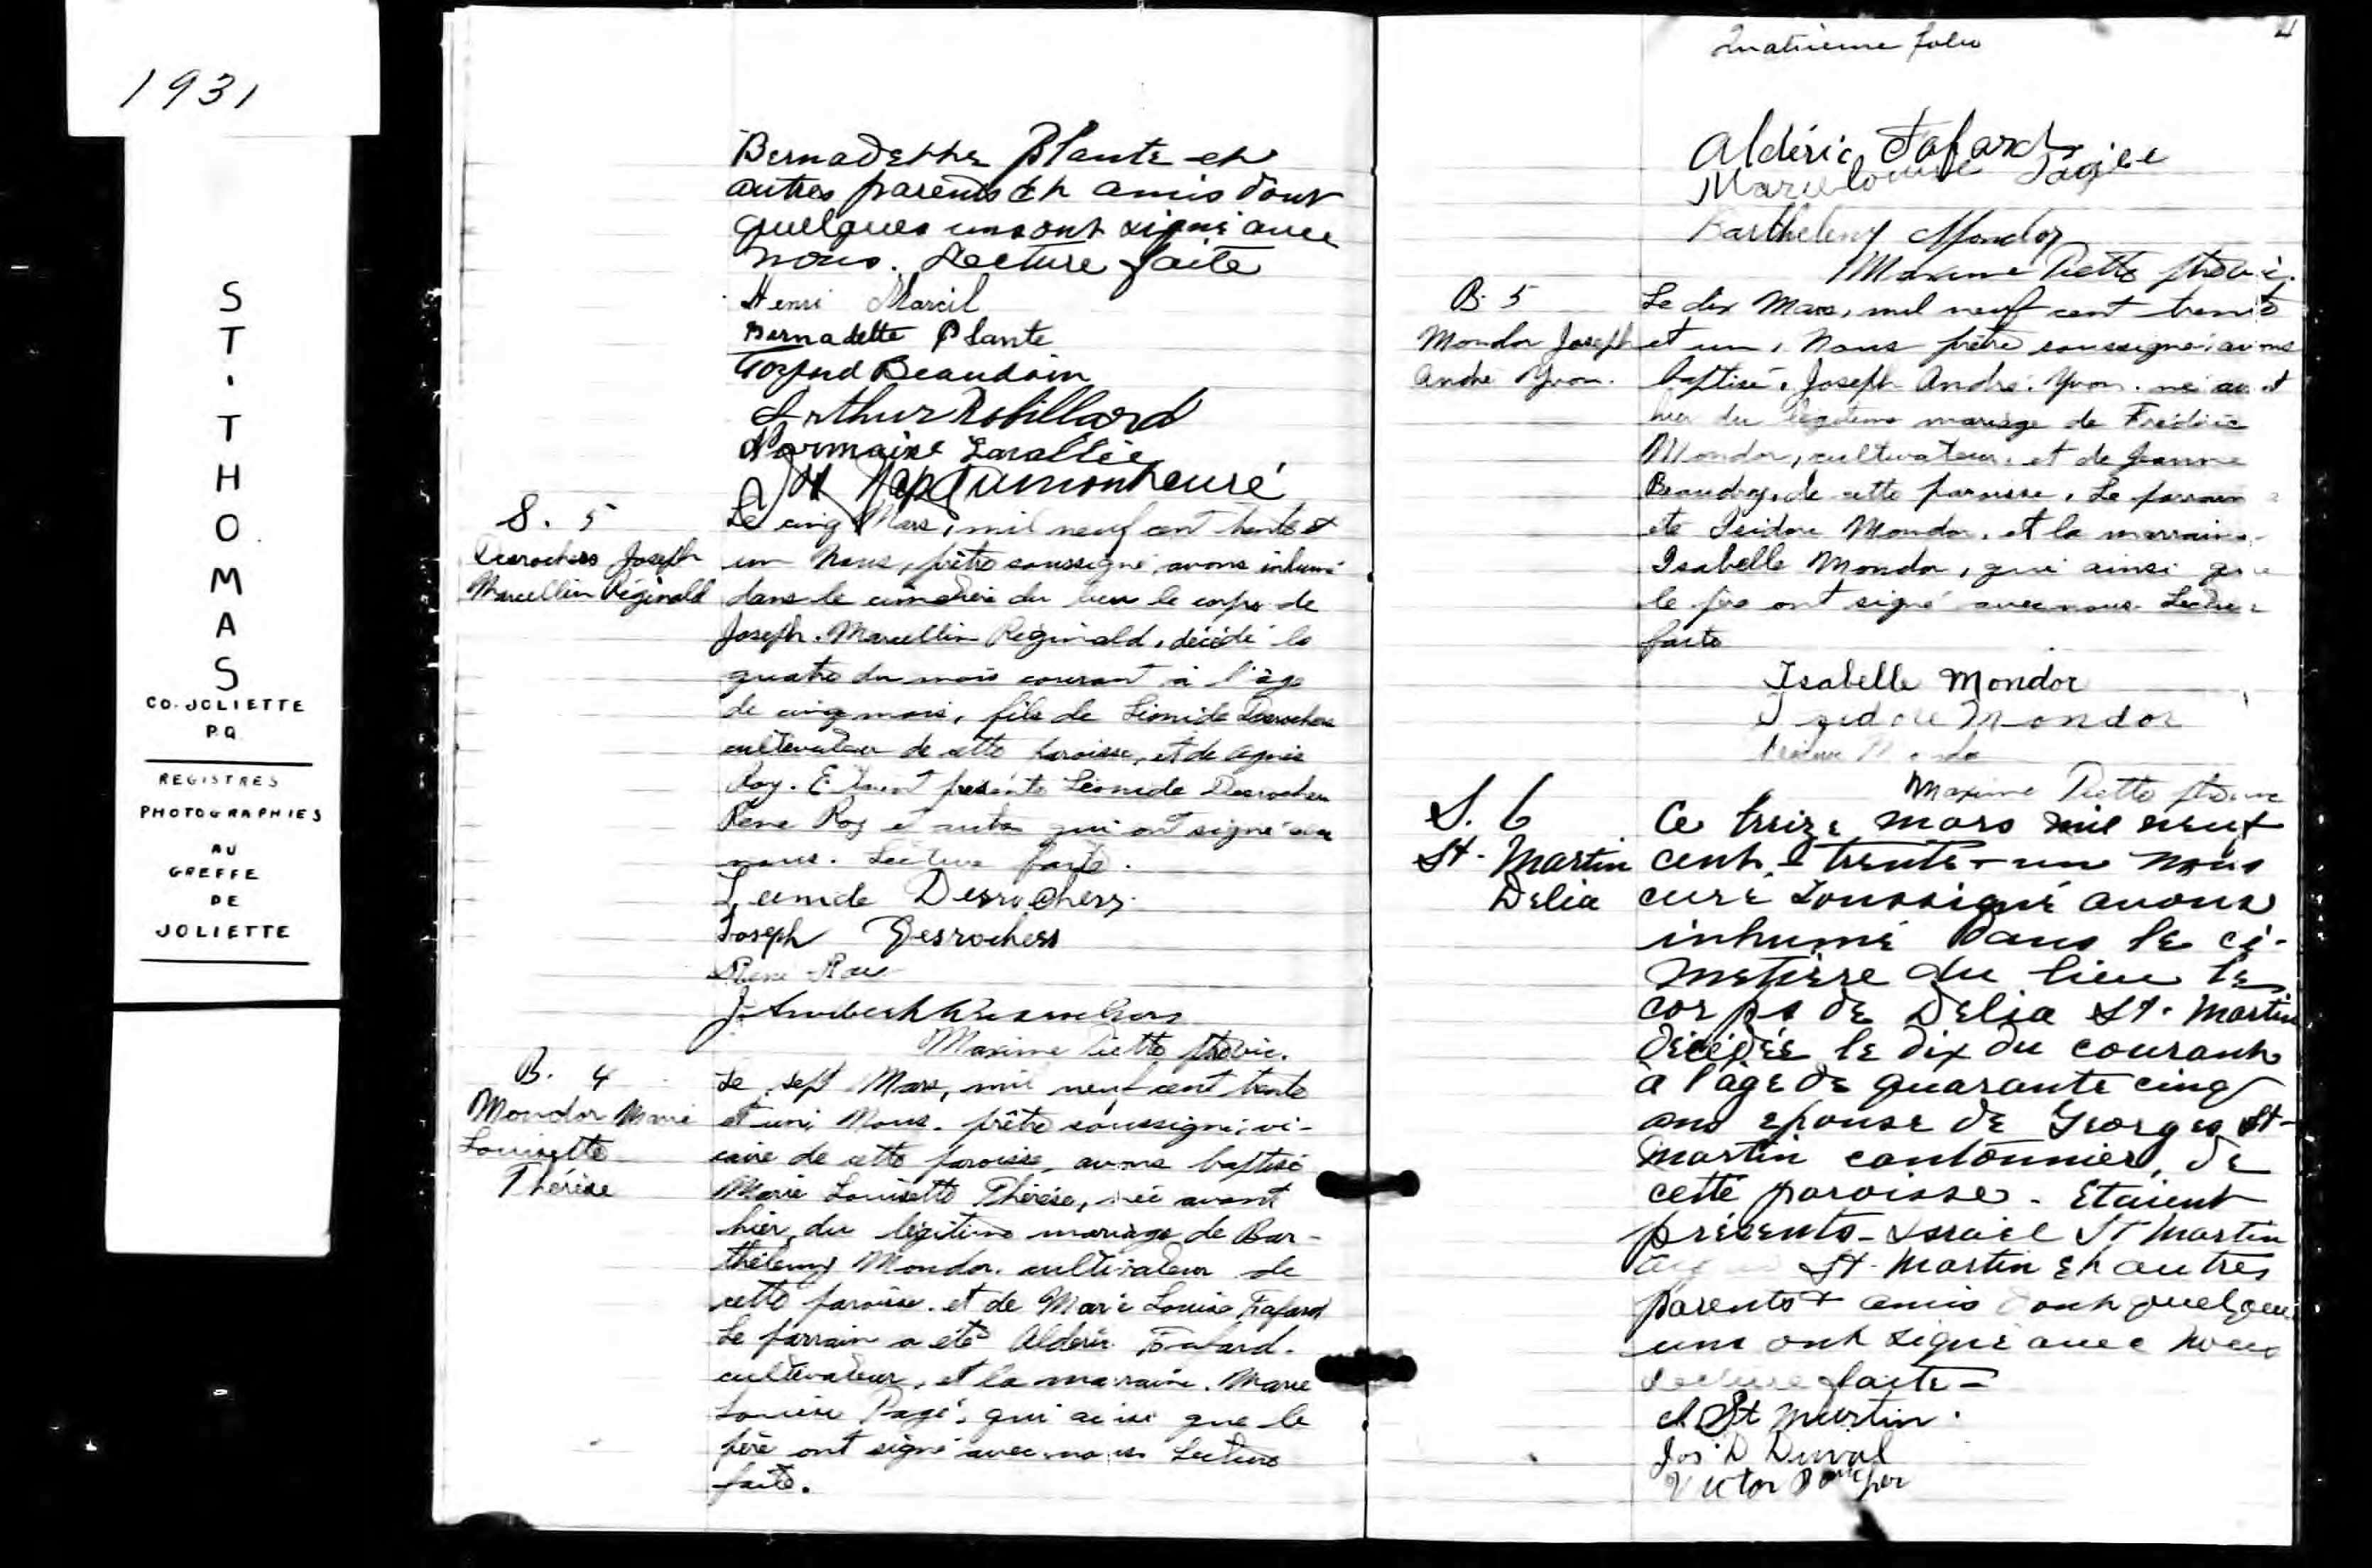 1931
ST. THOMAS
CO. JOLIETTE
P.Q.
REGISTRES
PHOTOGRAPHIES
AU
GREFFE
DE
JOLIETTE
Bernadette Plante et
autres parents et amis dont
quelques uns ont signé avec
nous. Lecture faite
Henri Marcil
Bernadette Plante
Beaudoin
Arthur Robillard
Lavallée
curé
S. 5
Desrochers Joseph
Marcellin Réginald
Le cinq Mars, mil neuf cent trente et
un Nous, prêtre soussigné, avons inhumé
dans le cimetière du lieu le corps de
Joseph. Marcellin Réginald, décédé le
quatre du mois courant à l'âge
de cinq mois, fils de Léonide Desrochers
cultivateur de cette paroisse, et de Agnès
Roy. Etaient présents Léonide Desrochers
René Roy et autres qui ont signé avec
nous. Lecture faite.
Leonide Desrochers
Joseph Desrochers
René Roy
Maxime Piette ptre vic.
B. 4
Mondor Marie
Louisette
Thérèse
Le sept Mars, mil neuf cent trente
et un, Nous. prêtre soussigné, vi-
caire de cette paroisse, avons baptisé
Marie Louisette Thérèse, née avant
hier, du légitime mariage de Bar-
thélemy Mondor. cultivateur de
cette paroisse. et de Marie Louise Fafard
Le parrain a été Aldéric Fafard.
cultivateur, et la marraine. Marie
Louise Pagé, qui ainsi que le
père ont signé avec nous Lecture
faite.
Quatrième folio
4
Aldéric Fafard
Marie Louise Pagée
Barthelemy Mondor
Maxime Piette ptre vic.
B. 5
Mondor Joseph
André Yvon.
Le dix Mars, mil neuf cent trente
et un, Nous prêtre soussigné, avons
baptisé, Joseph André. Yvon. né avant
hier du légitime mariage de Frédéric
Mondor, cultivateur, et de Jeanne
Beaudry, de cette paroisse, Le parrain a
été Isidore Mondor, et la marraine,
Isabelle Mondor, qui ainsi que
le père ont signé avec nous. Lecture
faite
Isabelle Mondor
Izidore Mondor
Maxime Piette ptre vic
S. 6
St-Martin
Delia
Ce treize mars mil neuf
cent trente-un nous
curé soussigné avons
inhumé dans le ci-
metière du lieu le
corps de Delia St-Martin
décédée le dix du courant
à l'age de quarante cinq
ans epouse de Georges St-
Martin cantonnier, de
cette paroisse. Etaient
présents Israel St Martin
St-Martin et autres
parents + amis dont quelques
uns ont signé avec nous
Lecture faite =
St Martin.
Jos D Duval
Victor